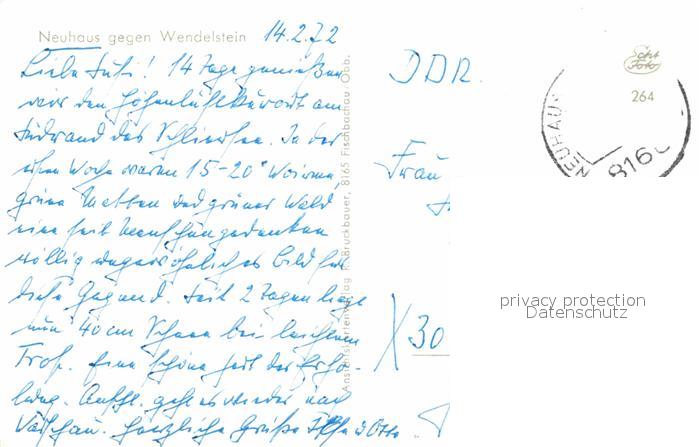 Neuhaus gegen Wendelstein 14.2.72
Liebe ! 14 Tage genießen
wir den Höhenluftkurort am
Südrand des Schliersee. In der
ersten Woche waren 15-20° Wärme,
grüne Matten und grüner Wald
eine seit Menschengedenken
völlig ungewöhnliches Bild für
diese Gegend. Seit 2 Tagen liegt
nun 40 cm Schnee bei leichtem
Frost. Eine schöne Zeit der Erho-
lung. Anschl. geht es wieder nach
Herzliche Grüße Otto
Ansichtskartenverlag H. Bruckbauer, 8165 Fischbachau Obb.
DDR.
Frau
X 30
Echt
Foto
264
NEUHAUS
8165
privacy protection
Datenschutz